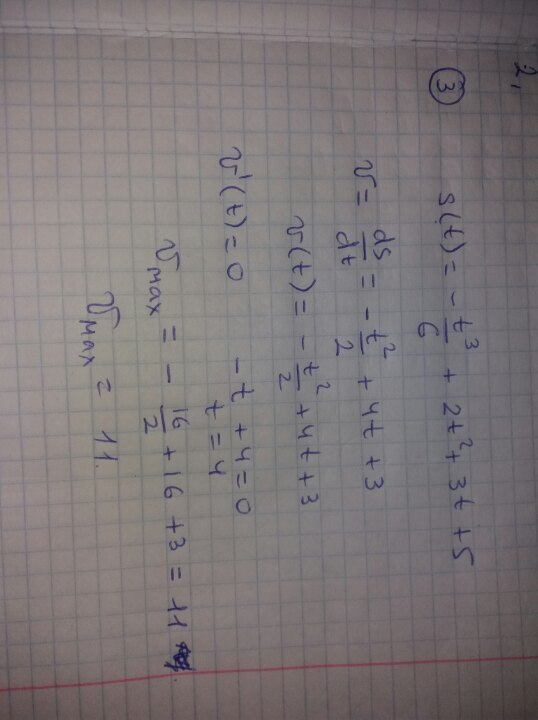 2.
③ s(t) = - t³/6 + 2t² + 3t + 5
v = ds/dt = - t²/2 + 4t + 3
v(t) = - t²/2 + 4t + 3
v'(t) = 0 -t + 4 = 0
t = 4
v max = - 16/2 + 16 + 3 = 11
v max = 11.